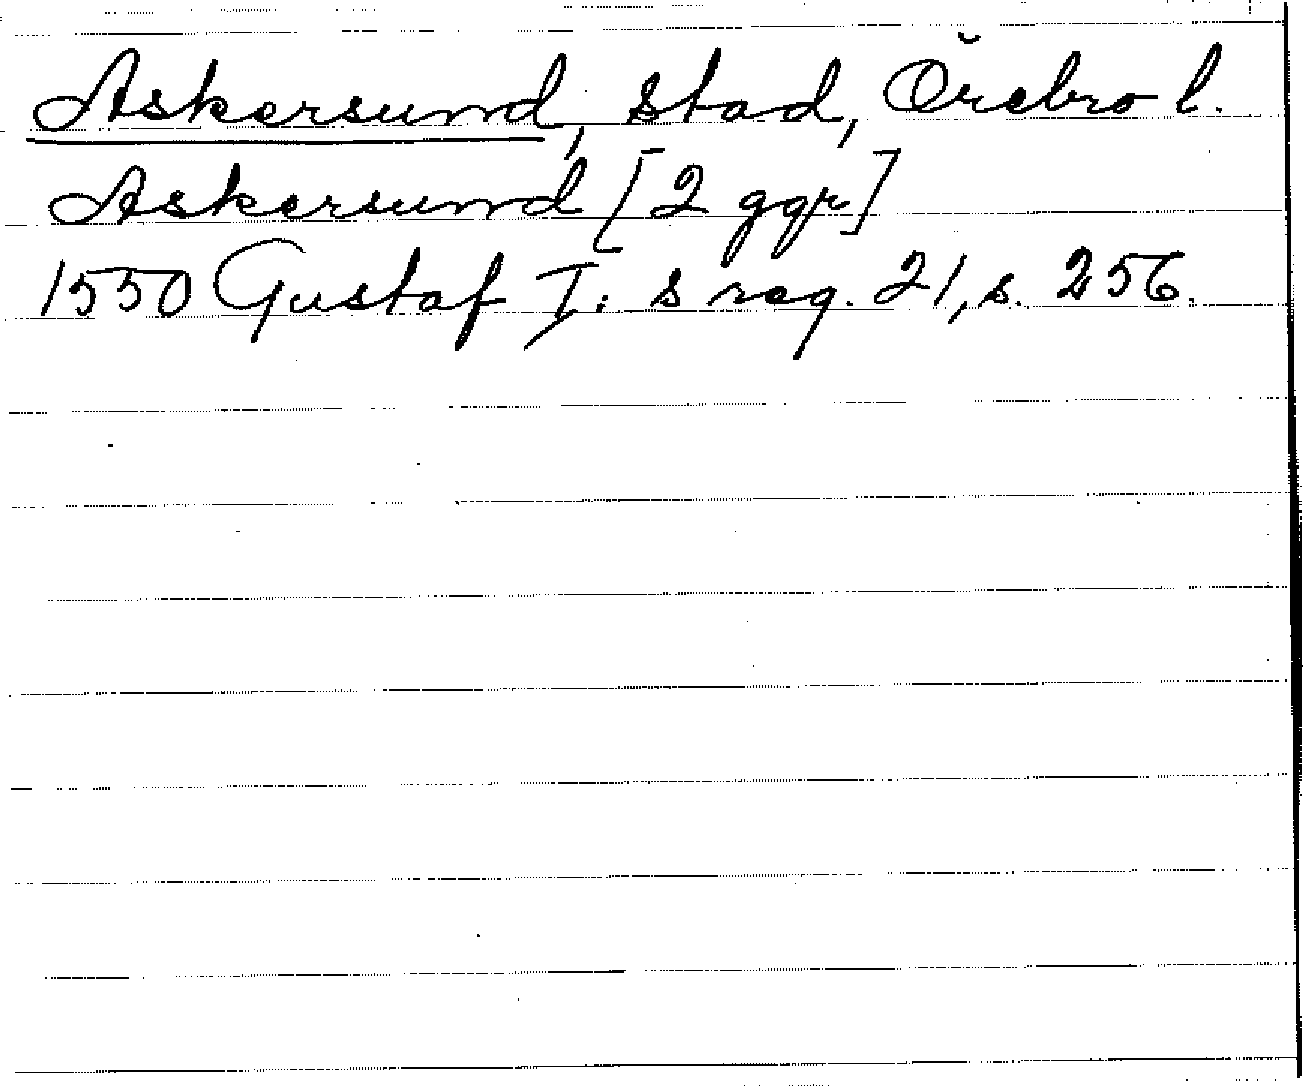 Askersund, stad, Örebro l.
Askersund [2 ggr]
1550 Gustaf I: s reg. 21, s. 256.